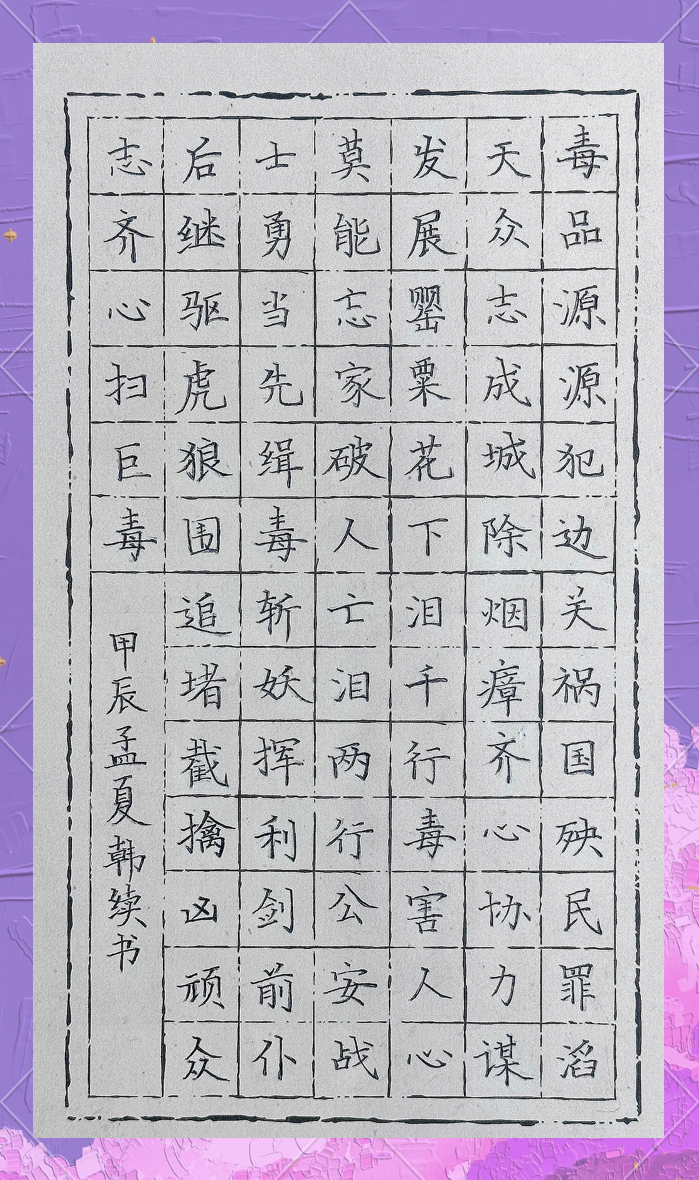 毒品源源犯边关祸国殃民罪滔
天众志成城除烟瘴齐心协力谋
发展罂粟花下泪千行毒害人心
莫能忘家破人亡泪两行公安战
士勇当先缉毒斩妖挥利剑前仆
后继驱虎狼围追堵截擒凶顽众
志齐心扫巨毒
甲辰孟夏韩续书